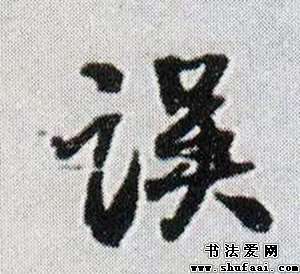 误
书法爱网
www.shufaai.com